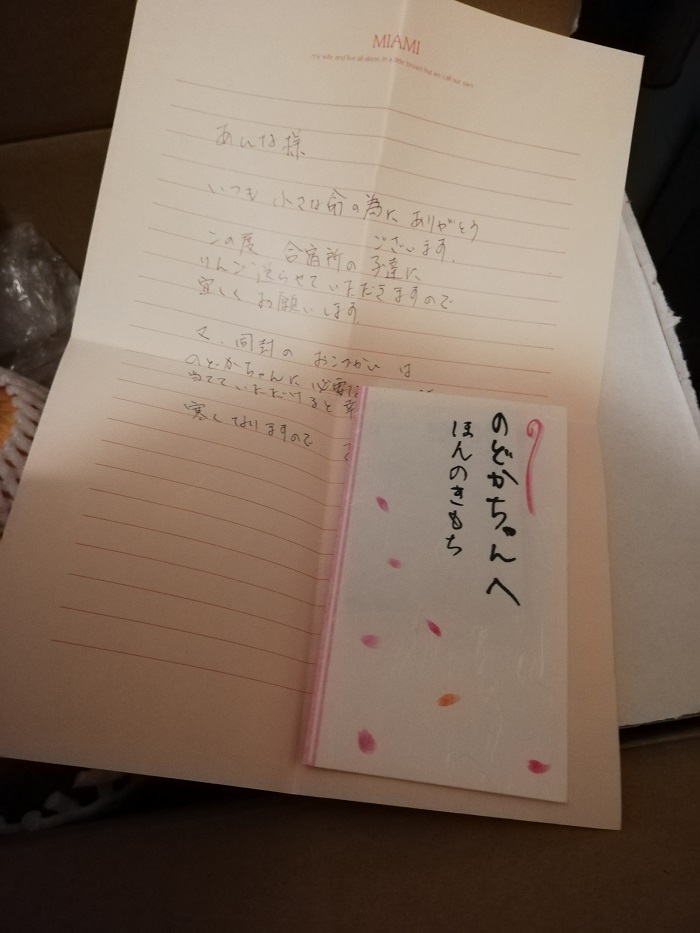 MIAMI
my wife and live all alone, in a little brown hut we call our own
あんな様
いつも 小さな命の為に ありがとう
ございます.
この度 合宿所の子達に
りんご送らせていただきますので
宜しくお願いします.
又、同封の おこづかい は
のどかちゃんに 必要
当てていただけると 幸
寒くなりますので
のどかちゃんへ
ほんのきもち